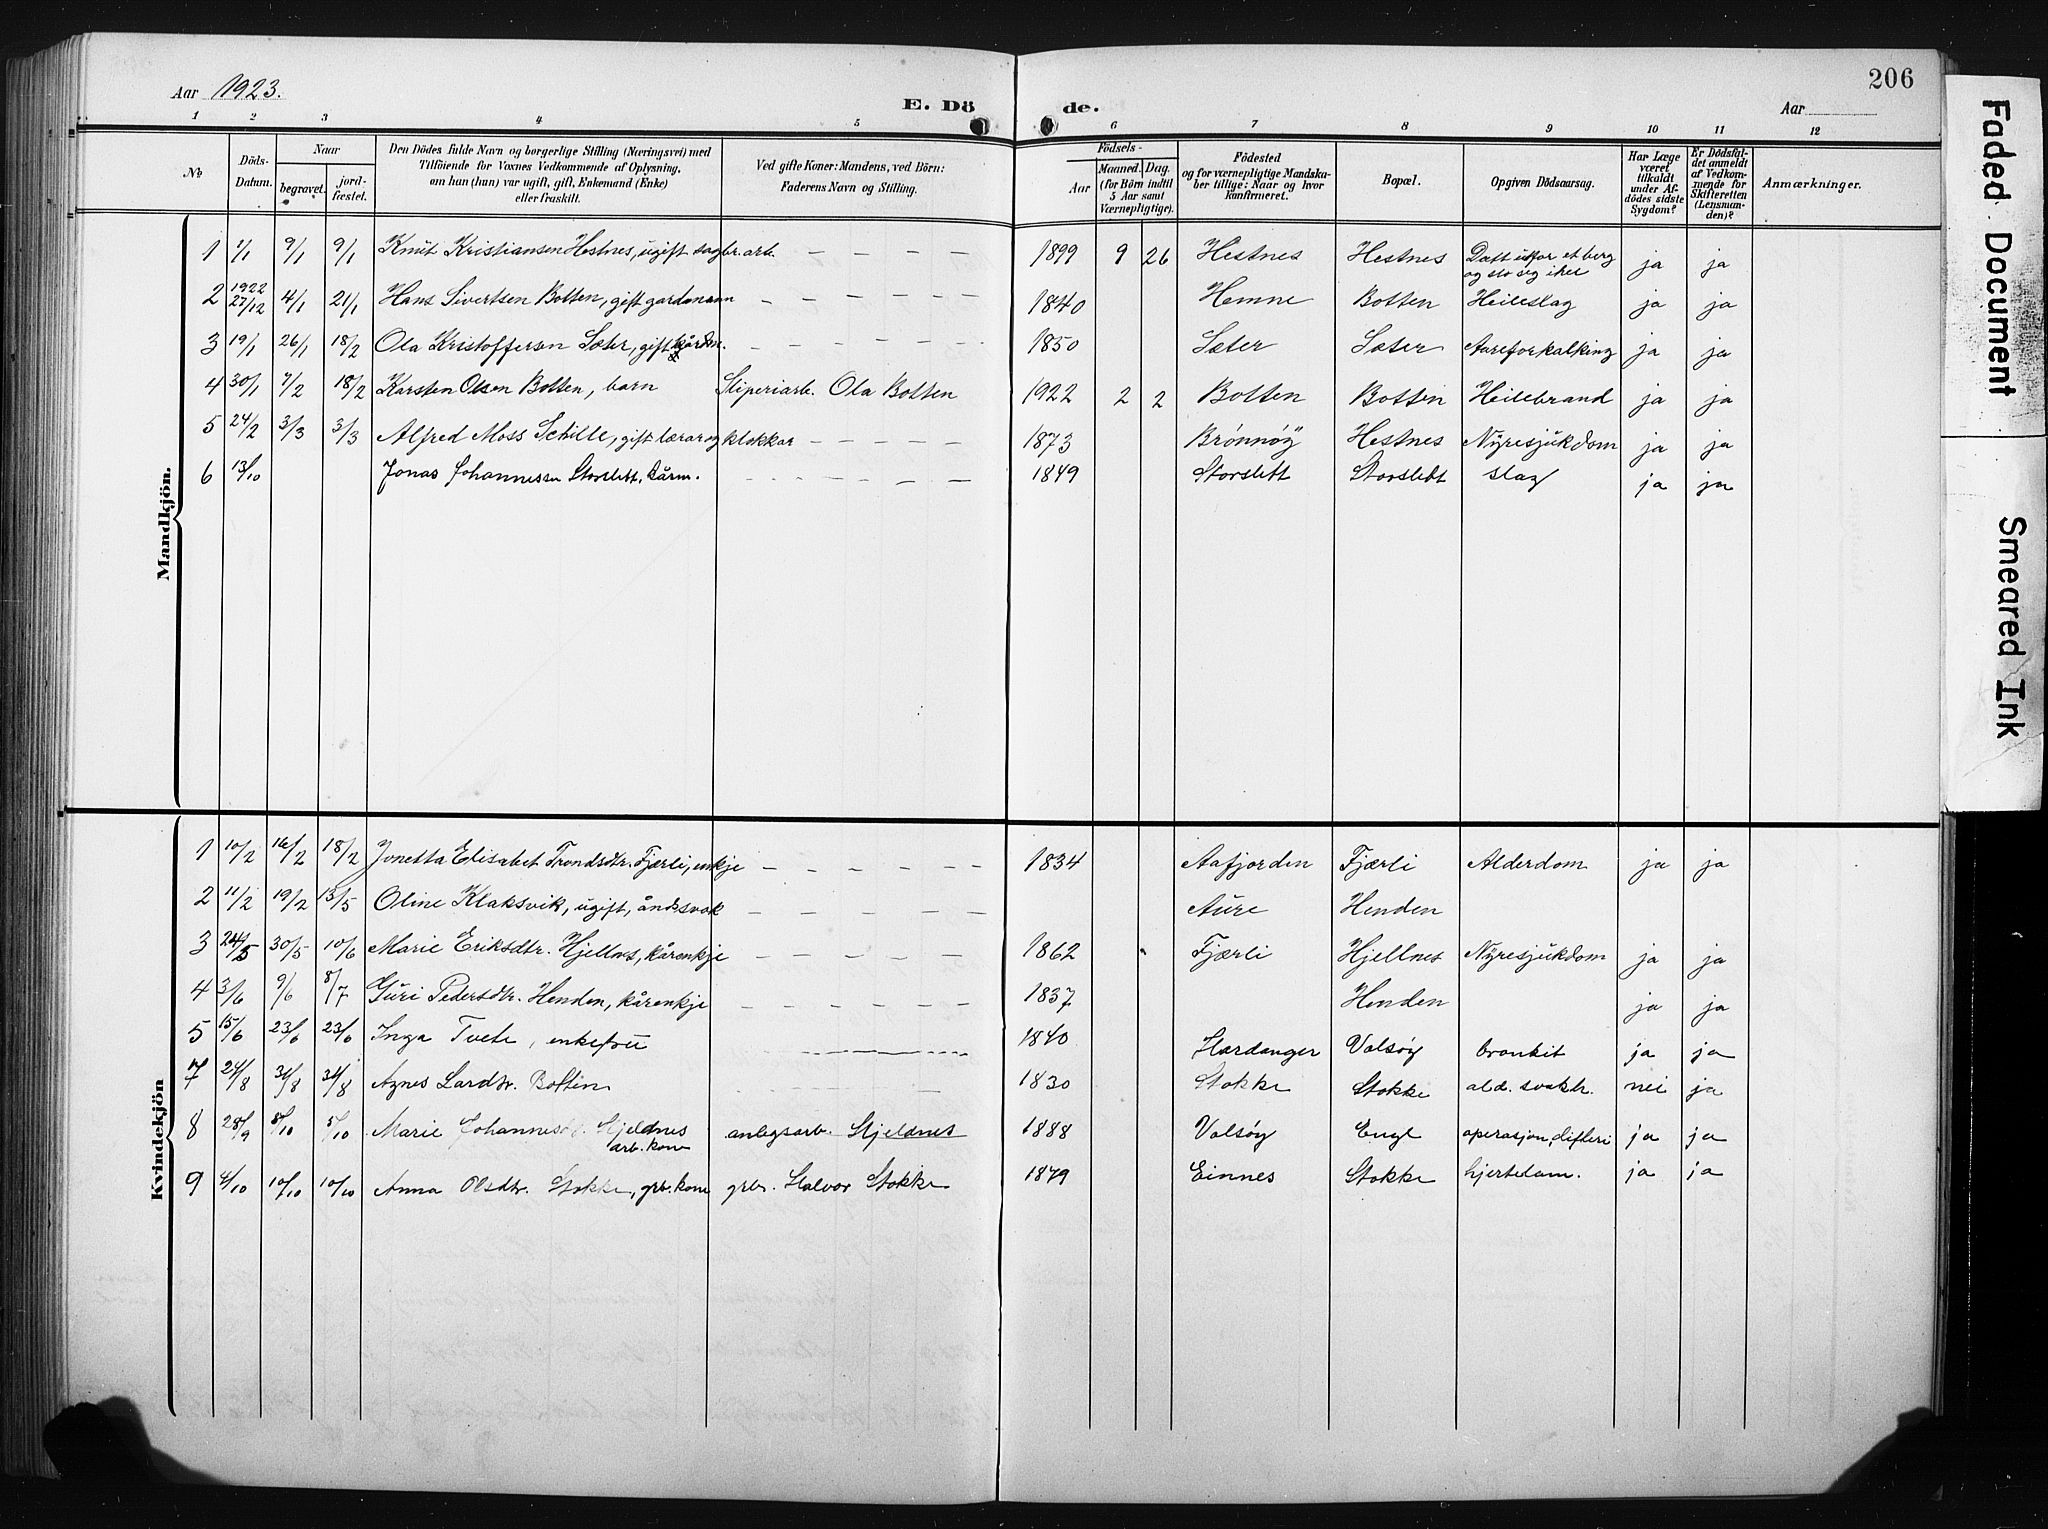 206
Aar 1923.
E. Dö de.
Aar
1 2 3 4 5 6 7 8 9 10 11 12
No
Döds-Datum.
Naar
begravet.
jord-fæstet.
Den Dödes fulde Navn og borgerlige Stilling (Næringsvei) med
Tilföiende for Voxnes Vedkommende af Oplysning,
om han (hun) var ugift, gift, Enkemand (Enke)
eller fraskilt.
Ved gifte Koner: Mandens, ved Börn:
Faderens Navn og Stilling.
Födsels-
Aar
Maaned. Dag.
(for Börn indtil
5 Aar samt
Værnepligtige).
Födested
og for værnepligtige Mandska-
ber tillige: Naar og hvor
konfirmeret.
Bopæl.
Opgiven Dödsaarsag.
Har Læge
været
tilkaldt
under Af-
dödes sidste
Sygdom?
Er Dödsfal-
det anmeldt
af Vedkom-
mende for
Skifteretten
(Lensman-
den)?
Anmærkninger.
Mandkjön.
1 1/1 9/1 9/1 Knut Kristiansen Hestnes, ugift sagbr. arb. — — — — 1899 9 26 Hestnes Hestnes Datt utfor et berg ja ja
og slo seg ihel
2 1922 27/12 4/1 21/1 Hans Sivertsen Botten, gift gardmann — — — — — 1840 Hemne Botten Heileslag ja ja
3 19/1 26/1 18/2 Ola Kristoffersen Sæter, gift kårdm. — — — — — 1850 Sæter Sæter Aareforkalking ja ja
4 30/1 7/2 18/2 Karsten Olsen Botten, barn Sliperiarb. Ola Botten 1922 2 2 Botten Botten Heilebrand ja ja
5 24/2 3/3 3/3 Alfred Moss Schille, gift lærar og klokkar — — — — 1873 Brønnøy Hestnes Nyresjukdom ja ja
6 13/10 Jonas Johannessen Storslett, kårm. — — — — — 1849 Storslett Storslett slag ja ja
Kvindekjön
1 10/2 16/2 18/2 Jonetta Elisabet Trondsdtr. Fjærli, enkje — — — — — — 1834 Aafjorden Fjærli Alderdom ja ja
2 11/2 19/2 13/5 Oline Klaksvik, ugift, åndsvak — — — — — — Aure Henden
3 24/5 30/5 10/6 Marie Eriksdtr. Hjellnes, kårenkje — — — — — — 1862 Fjærli Hjellnes Nyresjukdom ja ja
4 3/6 9/6 8/7 Guri Pedersdtr. Henden, kårenkje — — — — — — 1837 Henden ja ja
5 15/6 23/6 23/6 Inga Tvete, enkefru — — — — — 1840 Hardanger Valsøy bronkit ja ja
7 24/8 31/8 31/8 Agnes Larsdtr. Bottin — — — — — 1830 Stokke Stokke ald. svakh. nei ja
8 28/9 5/10 5/10 Marie Johannesd. Hjeldnes anlegsarb. Hjeldnes 1888 Valsøy Engl operasjon, difteri ja ja
arb. kone
9 4/10 10/10 10/10 Anna Olsdtr. Stokke, grbr. kone grbr. Halvor Stokke 1879 Einnes Stokke hjertedam. ja ja
Faded Document
Smeared Ink